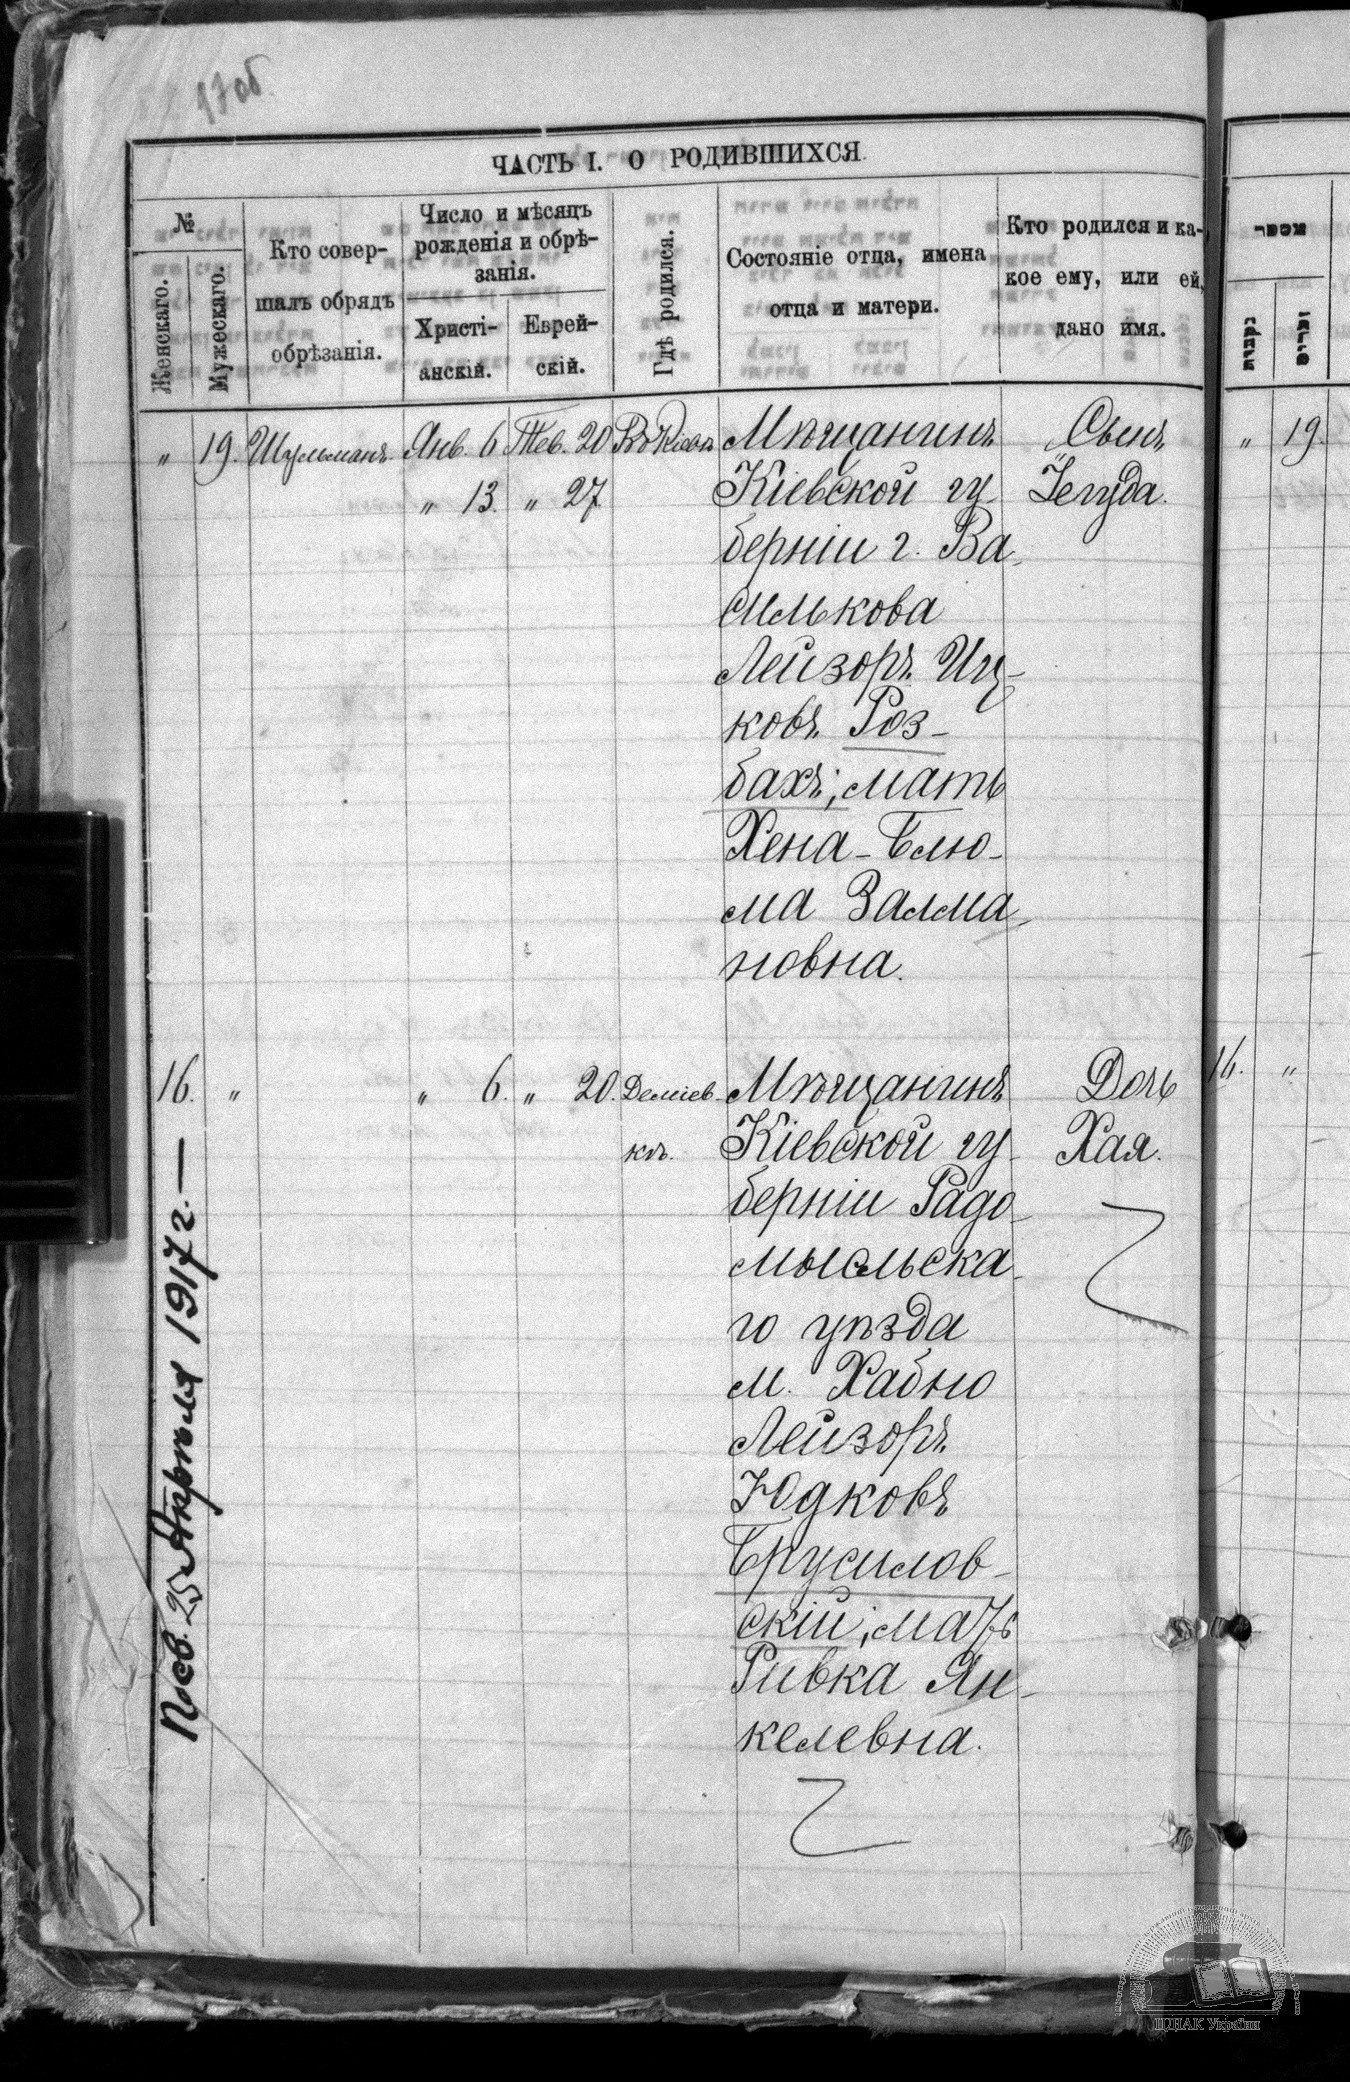 17 об
ЧАСТЬ I. О РОДИВШИХСЯ.
№
Женскаго.
Мужескаго.
Кто совер-
шалъ обрядъ
обрѣзанія.
Число и мѣсяцъ
рожденія и обрѣ-
занія.
Христі-
анскій.
Еврей-
скій.
Гдѣ родился.
Состояніе отца, имена
отца и матери.
Кто родился и ка-
кое ему, или ей,
дано имя.
מספר
נקבות
זכרים
„ 19. Шульманъ. Янв. 6 Тев. 20 Въ Кіевѣ Мѣщанинъ Сынъ „ 19.
„ 13. „ 27 Кіевской гу- Іегуда.
берніи г. Ва-
силькова
Лейзоръ Иц-
ковъ Роз-
бахъ; мать
Хена-Блю-
ма Залма-
новна.
16. „ „ 6. „ 20. Деміев- Мѣщанинъ Дочь 16. „
кѣ. Кіевской гу- Хая.
берніи Радо-
мысльска-
го уѣзда
м. Хабно
Лейзоръ
Юдковъ
Брусилов-
скій; мать
Ривка Ян-
келевна.
25 Апрѣля 1917 г. —
ЦДІАК України